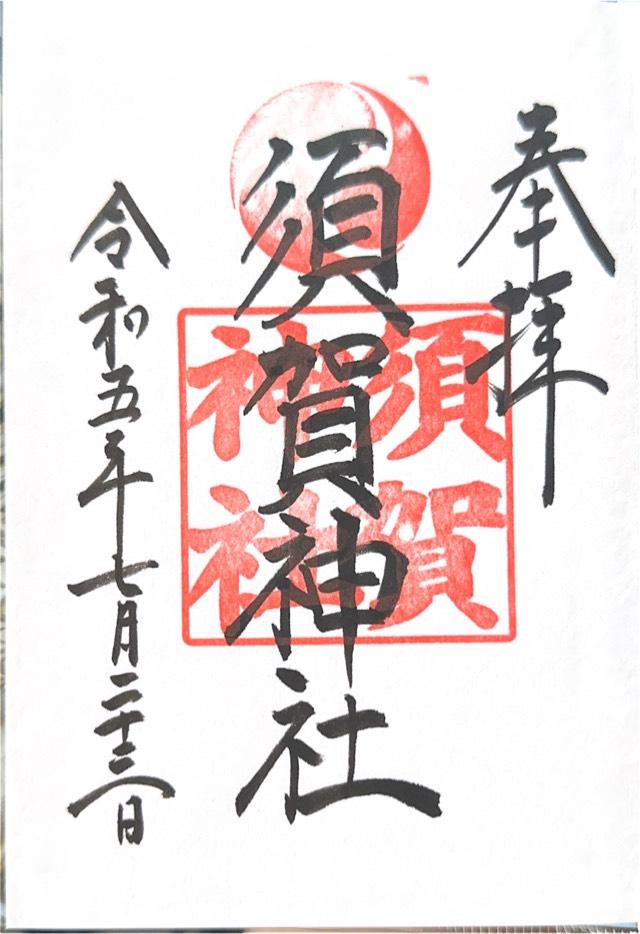 奉拝
須賀神社
須賀
神社
令和五年七月二十三日